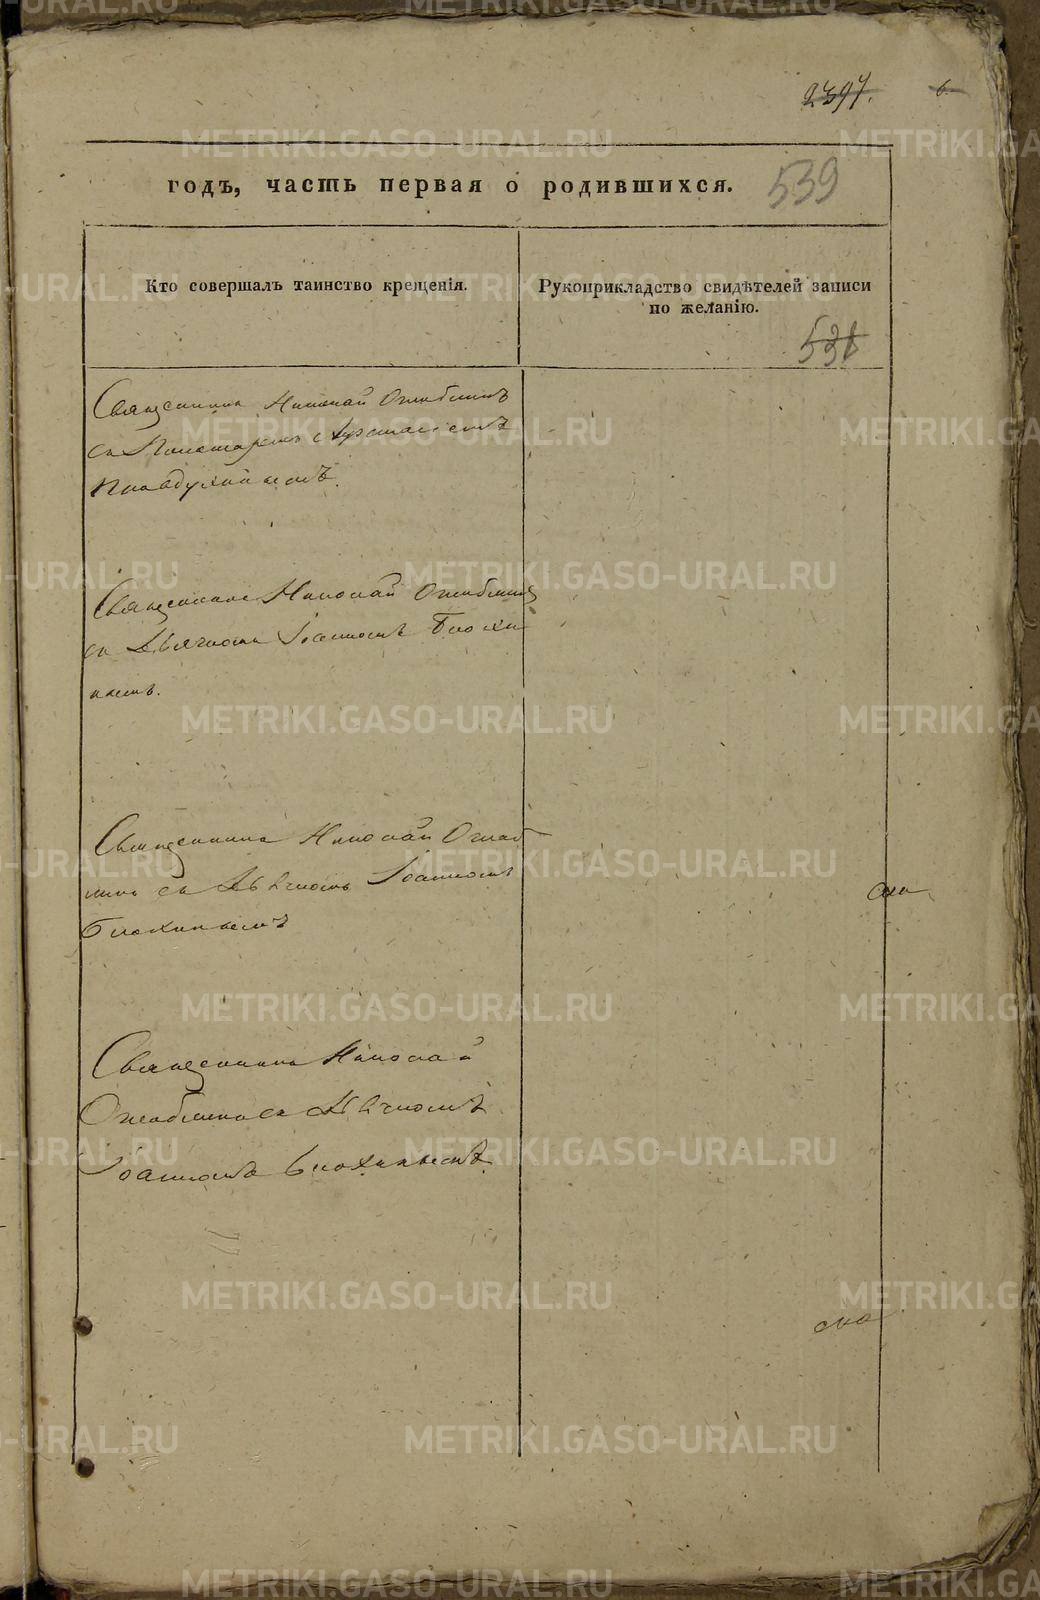 2397. 6
годъ, часть первая о родившихся. 539
Кто совершалъ таинство крещенія.
Рукоприкладство свидѣтелей записи
по желанію.
538
Священникъ Николай Оглоблинъ
съ Пономаремъ
Священникъ Николай Оглоблинъ
съ Дьячкомъ Іоанномъ Блохи
нымъ.
Священникъ Николай Оглоб
линъ съ Дьячкомъ Іоанномъ
Блохинымъ
Священникъ Николай
Оглоблинъ съ Дьячкомъ
Іоанномъ Блохинымъ.
METRIKI.GASO-URAL.RU